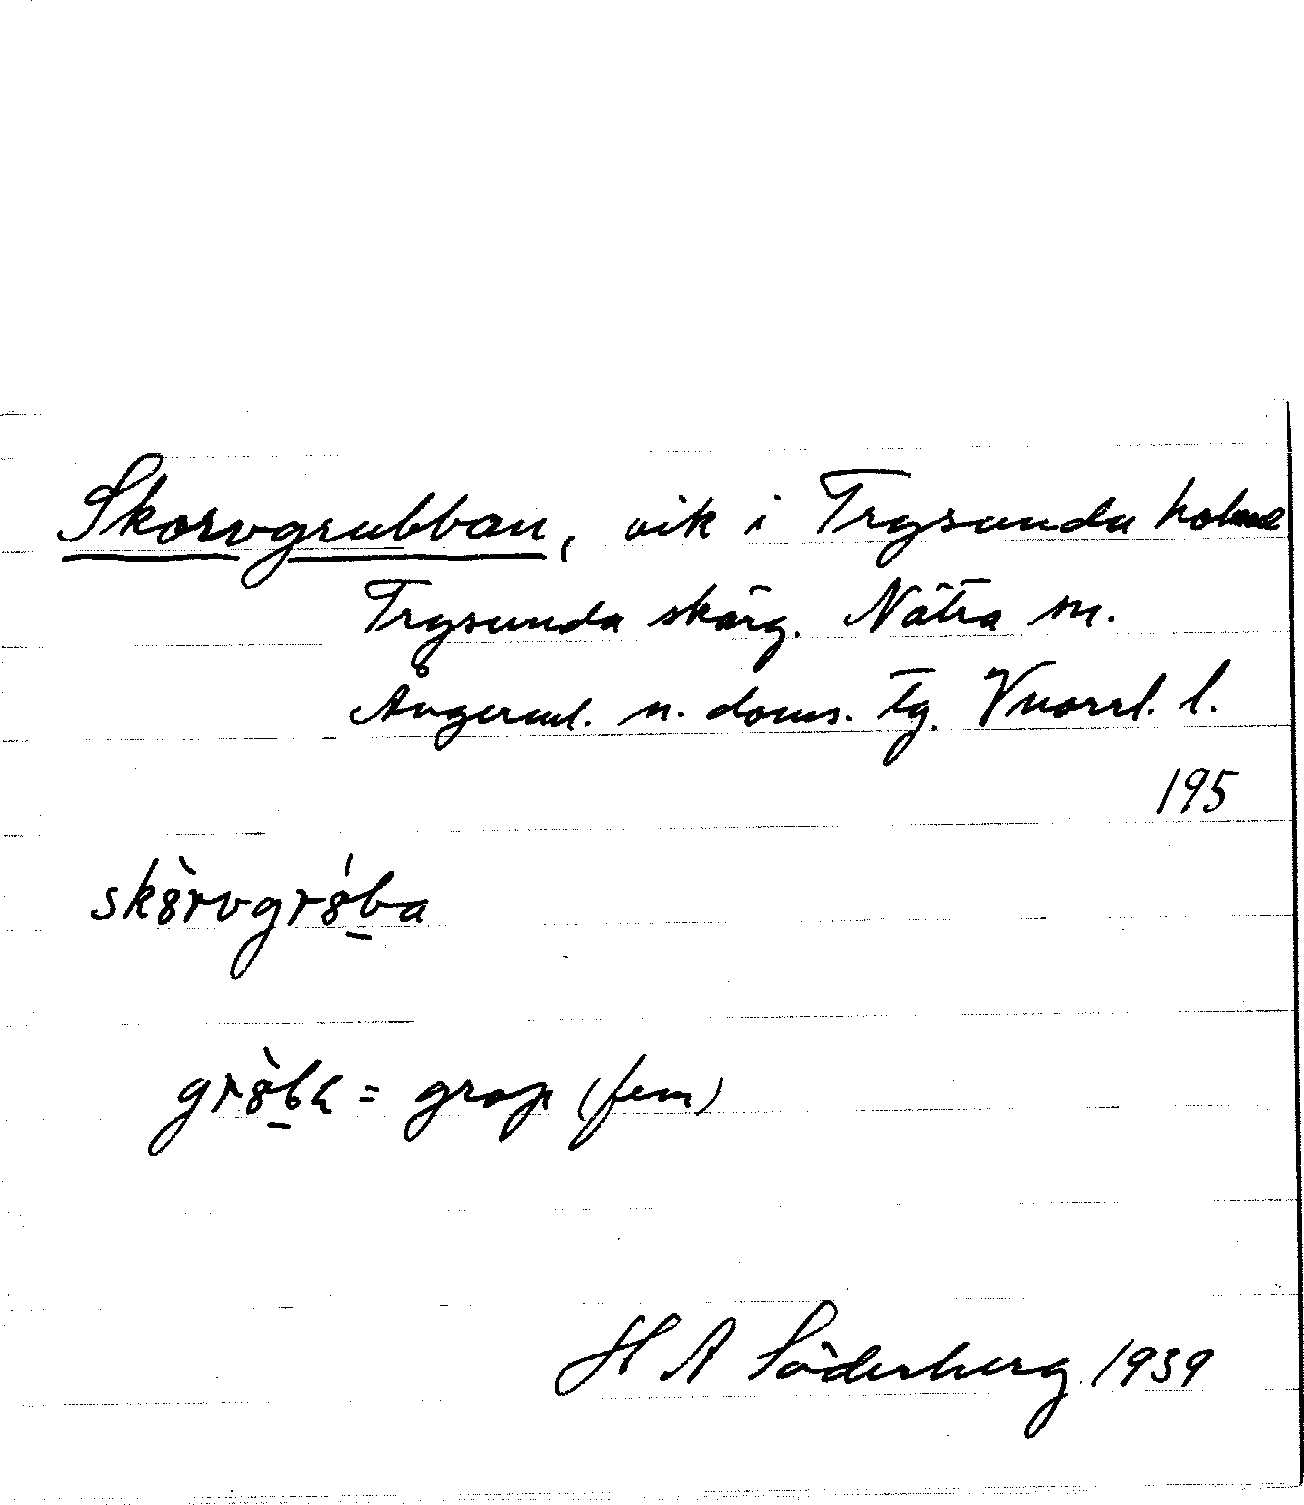 Skorvgrubban, vik i Trysunda holme
Trysunda skärg. Nätra sn.
Ångerml. n. doms. tg. Vnorrl. l.
195
skȯ̀rvgrȣ́ba
grȣ̀ba = grop (fem)
H A Söderberg 1939